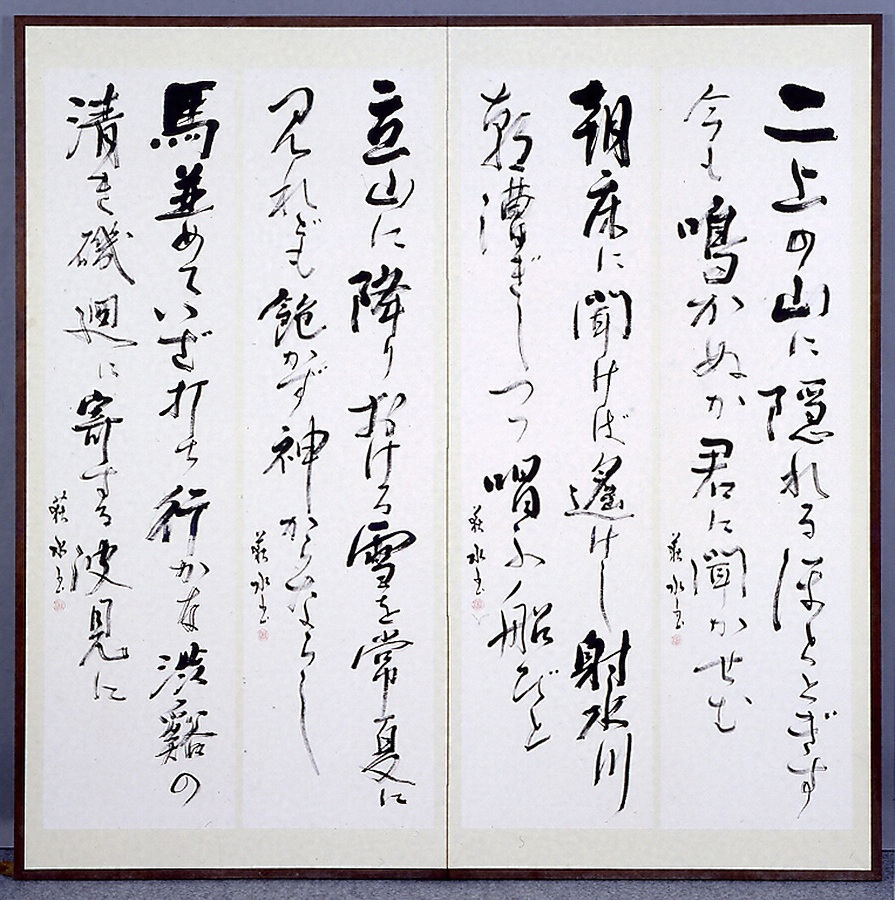 二上の山に隠れるほととぎす
今も鳴かぬか君に聞かせむ
朝床に聞けば遥けし射水川
朝漕ぎしつつ唱ふ船びと
立山に降りおける雪を常夏に
見れども飽かず神からならし
馬並めていざ打ち行かな渋谿の
清き磯廻に寄する波見に